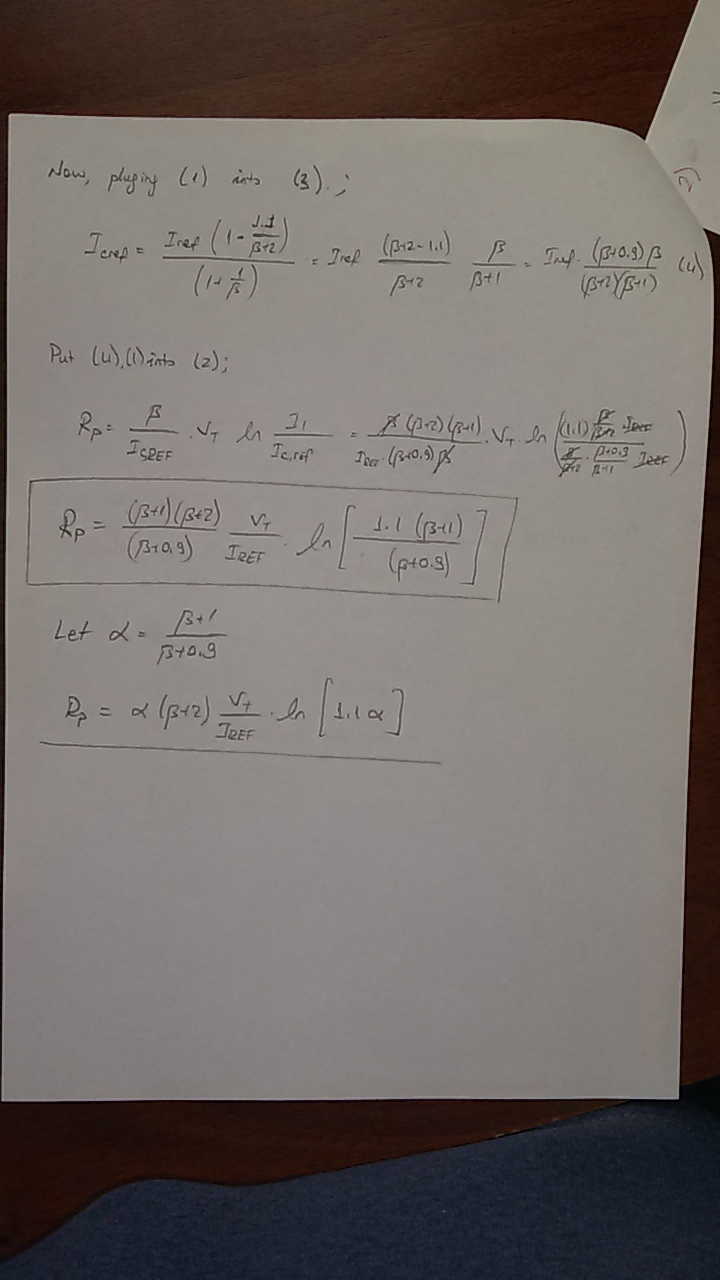 Now, pluging (1) into (3).;
Icref = Iref (1 - 1.1/(β+2)) / (1 + 1/β) = Iref (β+2-1.1)/(β+2) β/(β+1) = Iref. (β+0.9)β/((β+2)(β+1)) (4)
Put (4),(1) into (2);
Rp = β/ICREF . VT ln I1/Ic,ref = β(β+2)(β+1)/(IREF.(β+0.9)β) . VT . ln ((1.1) β/(β+2) IREF / (β/(β+2) . (β+0.9)/(β+1) IREF))
Rp = (β+1)(β+2)/(β+0.9) VT/IREF . ln [1.1 (β+1)/(β+0.9)]
Let α = (β+1)/(β+0.9)
Rp = α (β+2) VT/IREF . ln [1.1 α]